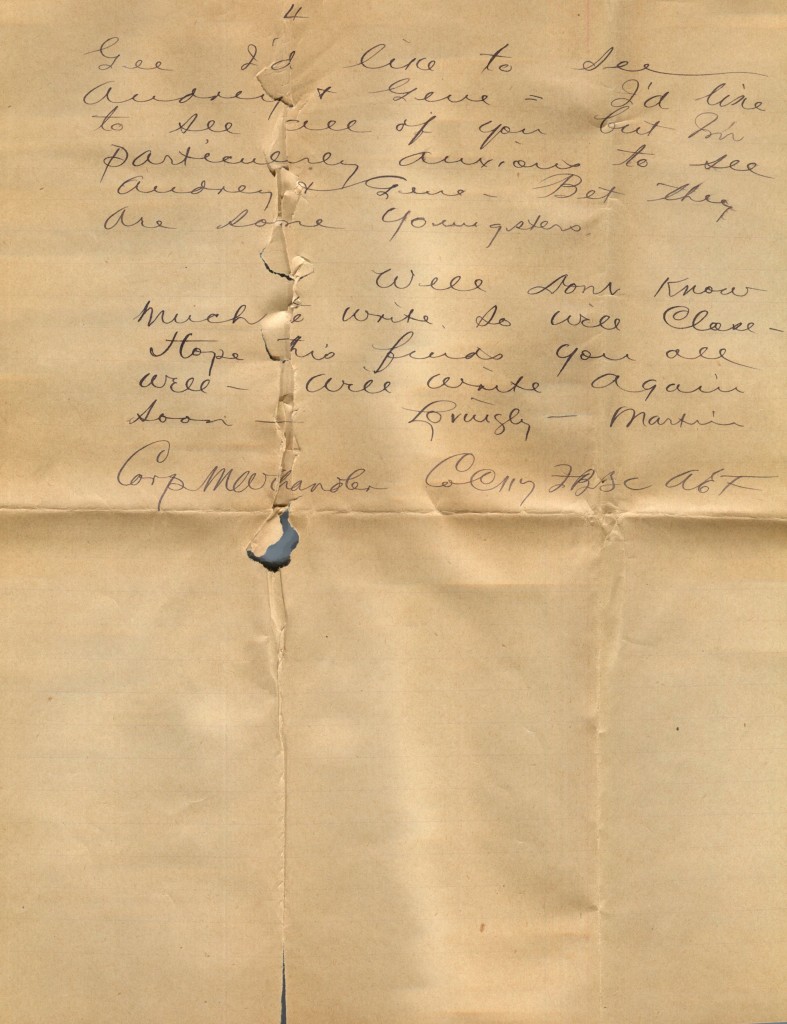 4
Gee I'd like to see
Audrey & Gene = I'd like
to see all of you but I'm
particularly anxious to see
Audrey & Gene - Bet they
are some youngsters.
Well dont know
much e write. So will Close -
Hope his finds you all
well - Will write again
soon - Lovingly - Martin
Corp MW Chandler Co C 117 F.B.S.C AEF